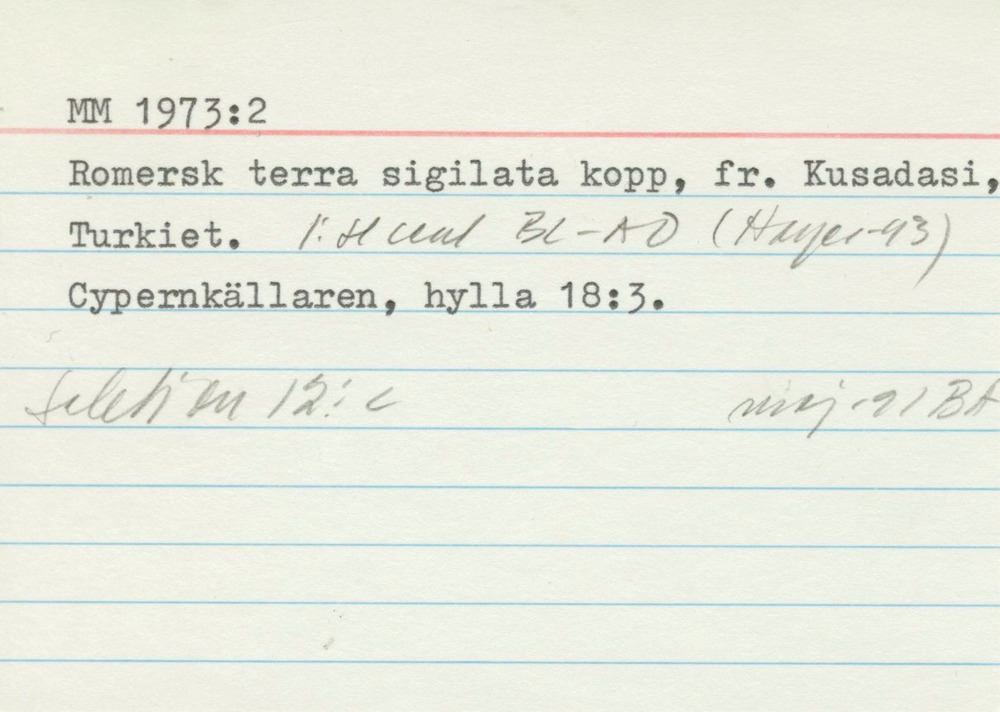 MM 1973:2
Romersk terra sigilata kopp, fr. Kusadasi,
Turkiet. 1:st cent BC-AD (Hayes-93)
Cypernkällaren, hylla 18:3.
sektion 12:c maj-91 BA